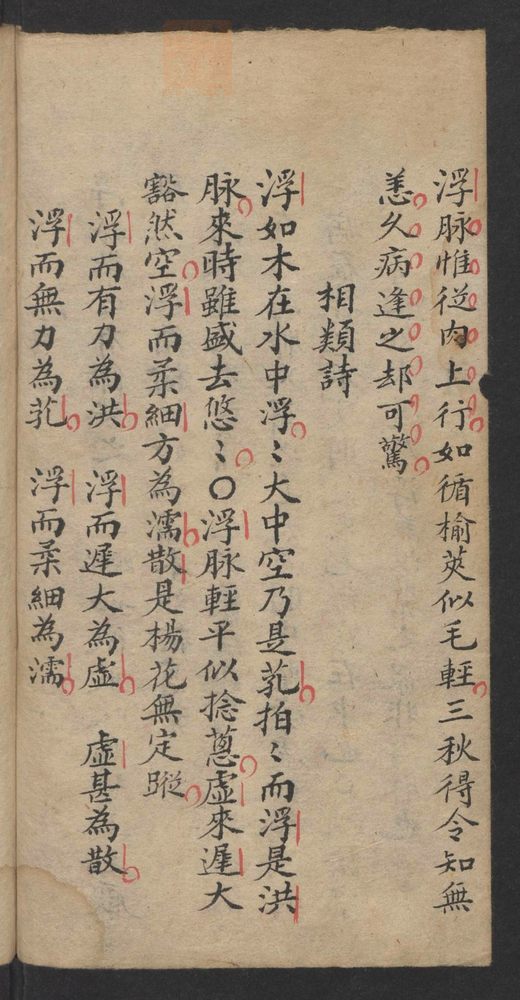 浮脉惟從肉上行如循榆莢似毛輕三秋得令知無
恙久病逢之却可驚
相類詩
浮如木在水中浮〻大中空乃是芤拍〻而浮是洪
脉來時雖盛去悠〻○浮脉輕平似捻蔥虛來遲大
豁然空浮而柔細方為濡散是楊花無定蹤
浮而有力為洪 浮而遲大為虛 虛甚為散
浮而無力為芤 浮而柔細為濡